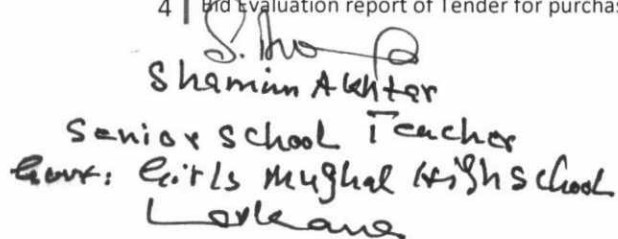 4 | Bid Evaluation report of Tender for purchas
Shamim Akhtar
Senior School Teacher
Govt: Girls Mughal High School
Larkana